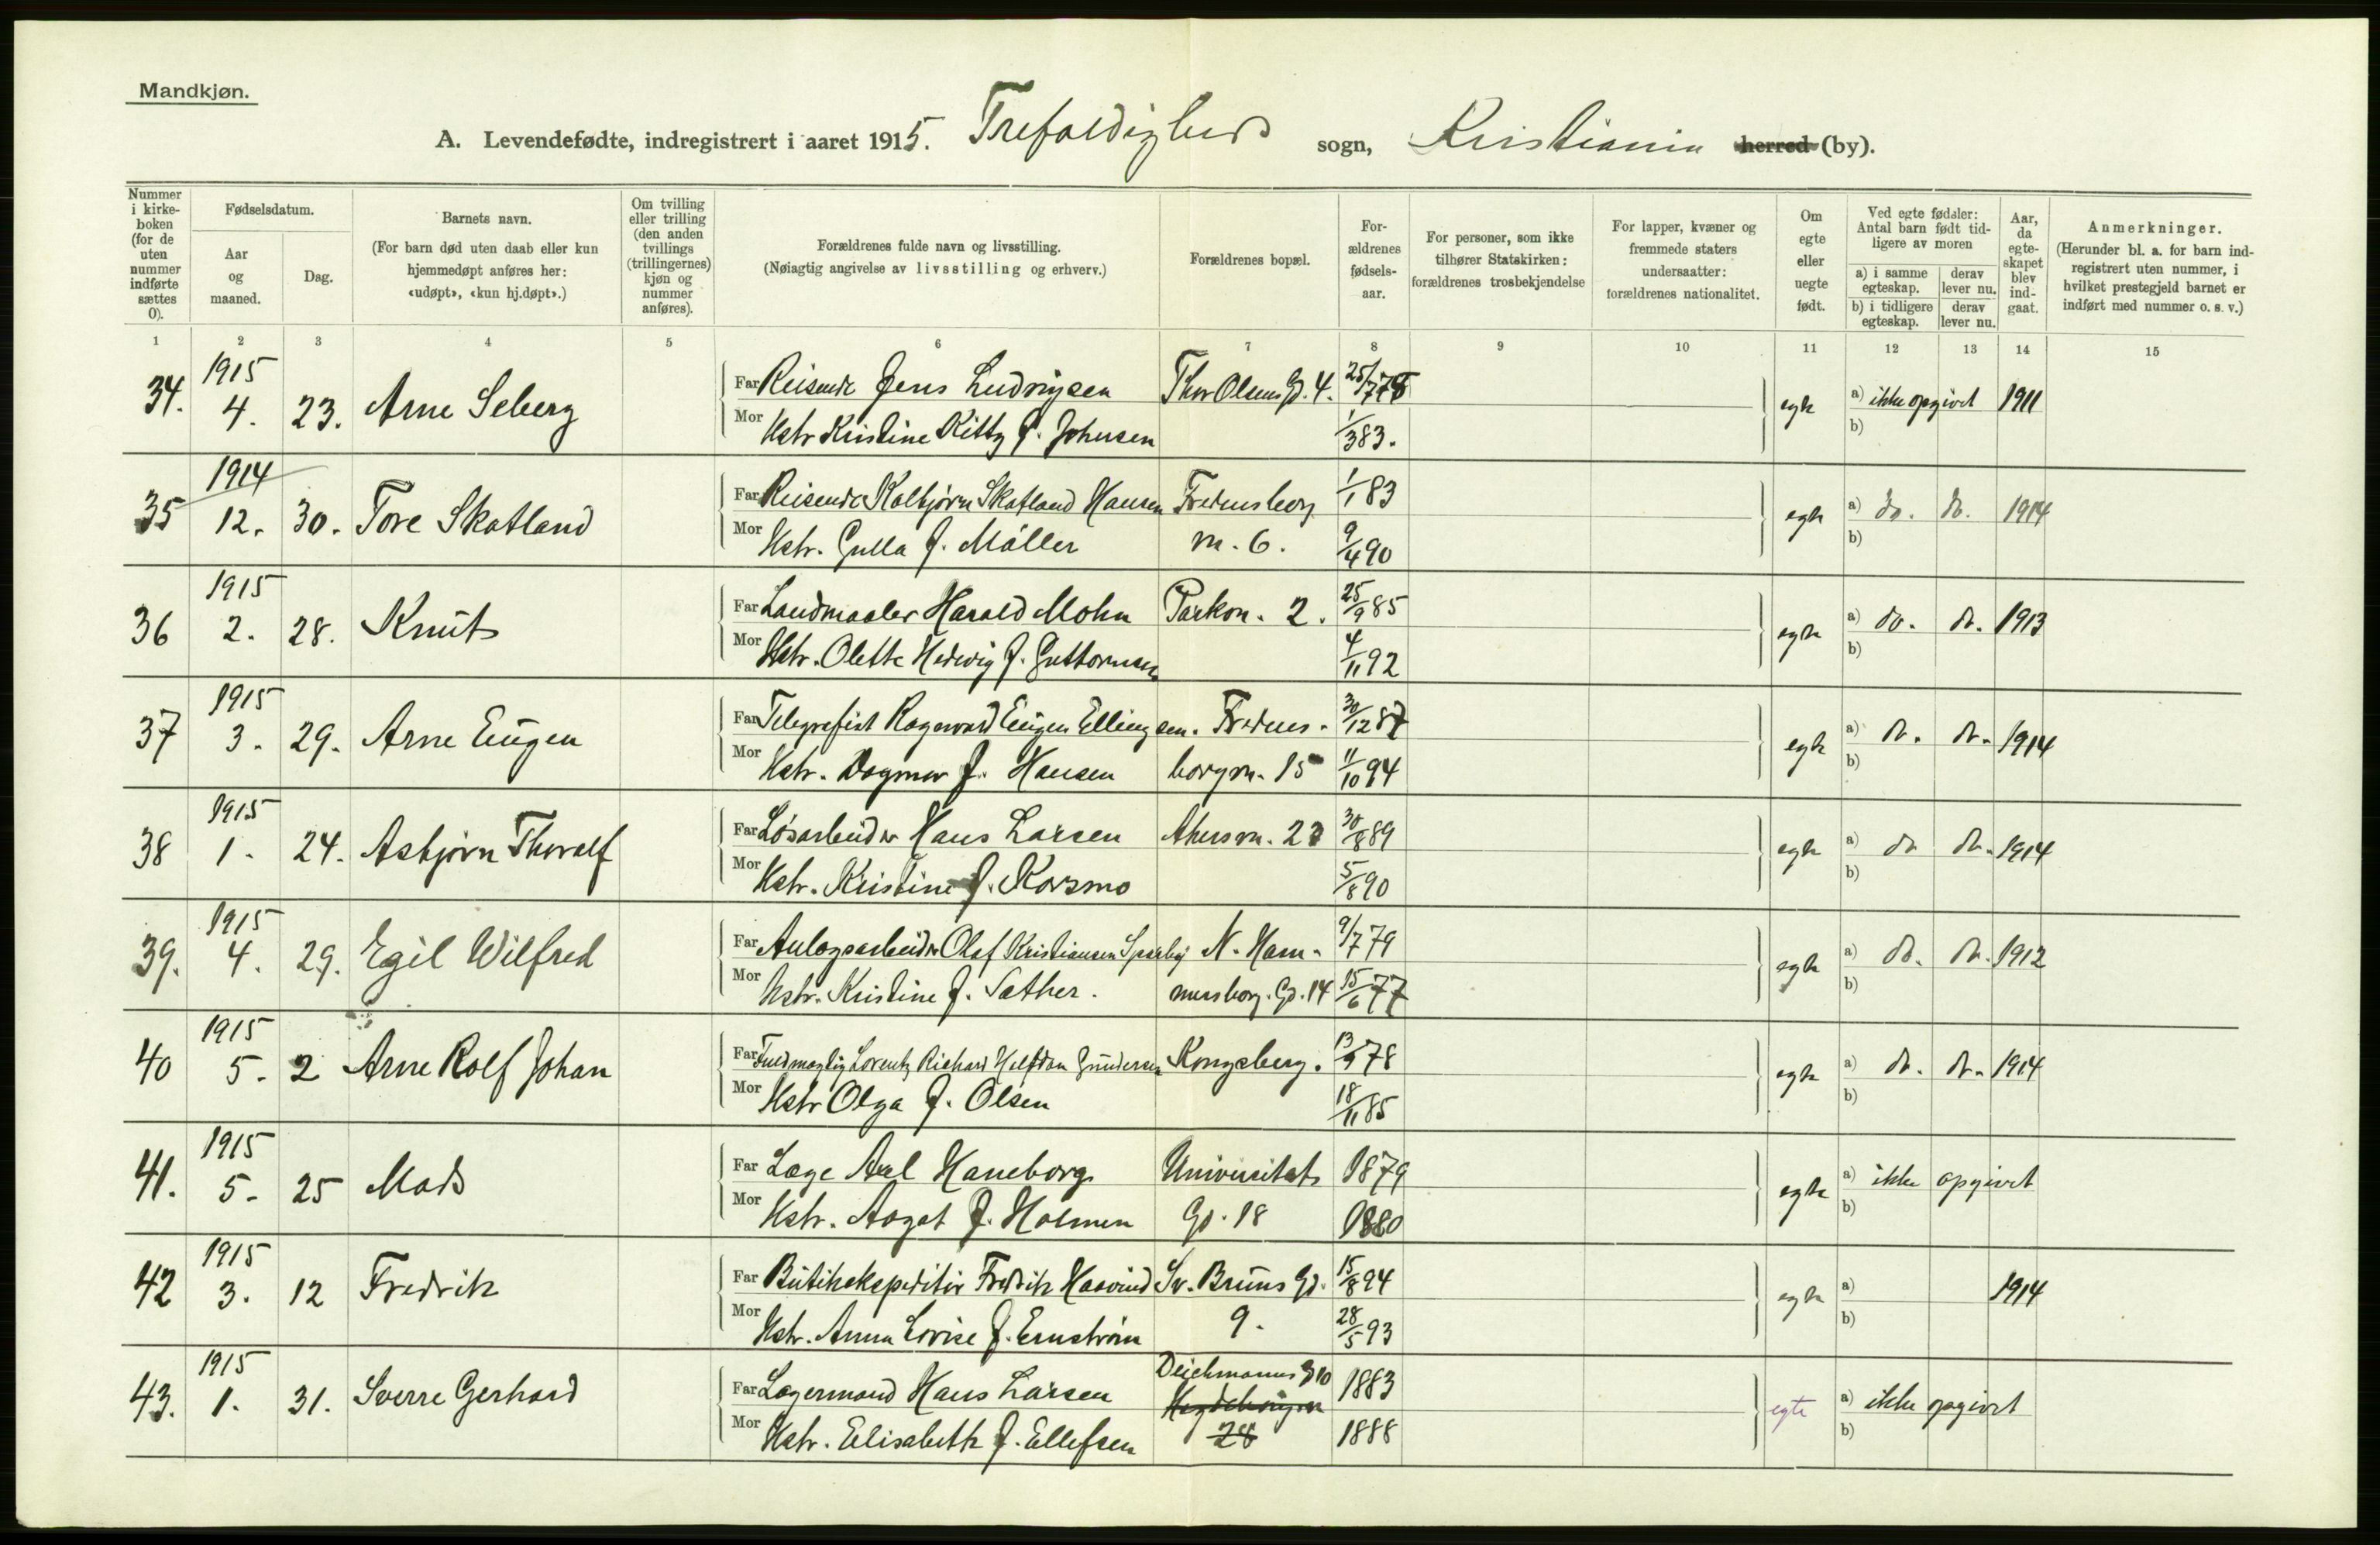 Mandkjøn.
A. Levendefødte, indregistrert i aaret 1915. Trefoldigheds sogn, Kristiania herred (by).
Nummer i kirke-boken (for de uten nummer indførte sættes 0).
Fødselsdatum.
Aar og maaned.
Dag.
Barnets navn.
(For barn død uten daab eller kun hjemmedøpt anføres her: «udøpt», «kun hj.døpt».)
Om tvilling eller trilling (den anden tvillings (trillingernes) kjøn og nummer anføres).
Forældrenes fulde navn og livsstilling.
(Nøiagtig angivelse av livsstilling og erhverv.)
Forældrenes bopæl.
For-ældrenes fødsels-aar.
For personer, som ikke tilhører Statskirken: forældrenes trosbekjendelse
For lapper, kvæner og fremmede staters undersaatter: forældrenes nationalitet.
Om egte eller uegte født.
Ved egte fødsler: Antal barn født tid-ligere av moren
a) i samme egteskap.
derav lever nu.
b) i tidligere egteskap.
derav lever nu.
Aar, da egte-skapet blev ind-gaat.
Anmerkninger.
(Herunder bl. a. for barn ind-registrert uten nummer, i hvilket prestegjeld barnet er indført med nummer o. s. v.)
1 2 3 4 5 6 7 8 9 10 11 12 13 14 15
1915
34. 4. 23. Arne Seberg
Far Reisende Jens Ludvigsen Thor Olsens Gd. 4. 25/7 78
Mor Hstr Kristine Kitty f. Johnsen 1/3 83.
egte a) ikke opgivet 1911
b)
1914
35 12. 30. Tore Skatland
Far Reisende Kolbjørn Skatland Hansen Fredensborg 1/1 83
Mor Hstr. Gulla f. Møller v. 6. 9/4 90
egte a) do. do. 1914
b)
1915
36 2. 28. Knut
Far Landmaaler Harald Mohn Parkv. 2. 25/9 85
Mor Hstr. Olette Hedvig f. Guttormsen 4/11 92
egte a) do. do. 1913
b)
1915
37 3. 29. Arne Eugen
Far Telegrafist Ragnvard Eugen Ellingsen. Fredens- 30/12 87
Mor Hstr. Dagmar f. Hansen borgv. 15 11/10 94
egte a) do. do. 1914
b)
1915
38 1. 24. Asbjørn Thoralf
Far Løsarbeider Hans Larsen Akersv. 23 30/8 89
Mor Hstr. Kristine f. Korsmo 5/8 90
egte a) do do. 1914
b)
1915
39. 4. 29. Egil Wilfred
Far Anlægsarbeider Olaf Kristiansen Sparby N. Ham- 9/7 79
Mor Hstr. Kristine f. Sæther. mersborg. Gd. 14 15/6 77
egte a) do. do. 1912
b)
1915
40 5. 2 Arne Rolf Johan
Far Fuldmægtig Lorentz Richard Halfdan Gundersen Kongsberg. 13/9 78
Mor Hstr Olga f. Olsen 18/11 85
egte a) do. do. 1914
b)
1915
41. 5. 25 Mads
Far Læge Axel Haneborg Universitets 1879
Mor Hstr. Aagot f. Holmen Gd. 18 1880
egte a) ikke opgivet
b)
1915
42 3. 12 Fredrik
Far Butikekspeditør Fredrik Haavind Sv. Bruns Gd. 15/8 94
Mor Hstr. Anna Lovise f. Ernstrøm 9. 28/5 93
egte a) 1914
b)
1915
43. 1. 31. Sverre Gerhard
Far Lagermand Hans Larsen Deichmanns G 10 1883
Mor Hstr. Elisabeth f. Ellefsen 28 1888
egte a) ikke opgivet
b)